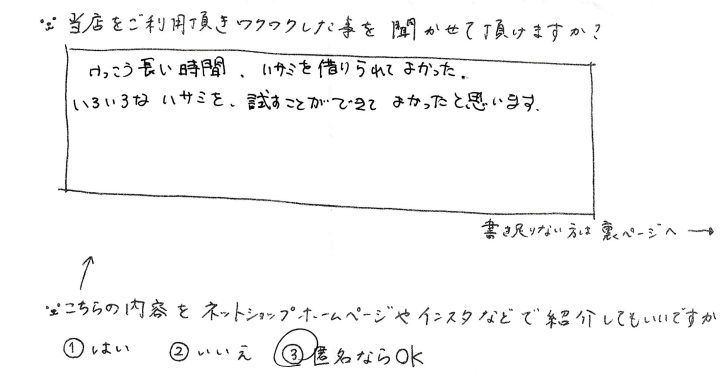 当店をご利用頂きワクワクした事を聞かせて頂けますか?
けっこう長い時間、ハサミを借りられてよかった。
いろいろな ハサミを、試すことができて よかったと思います。
書き足りない方は裏ページへ →
こちらの内容をネットショップホームページやインスタなどで紹介してもいいですか
①はい ②いいえ ③匿名ならOK